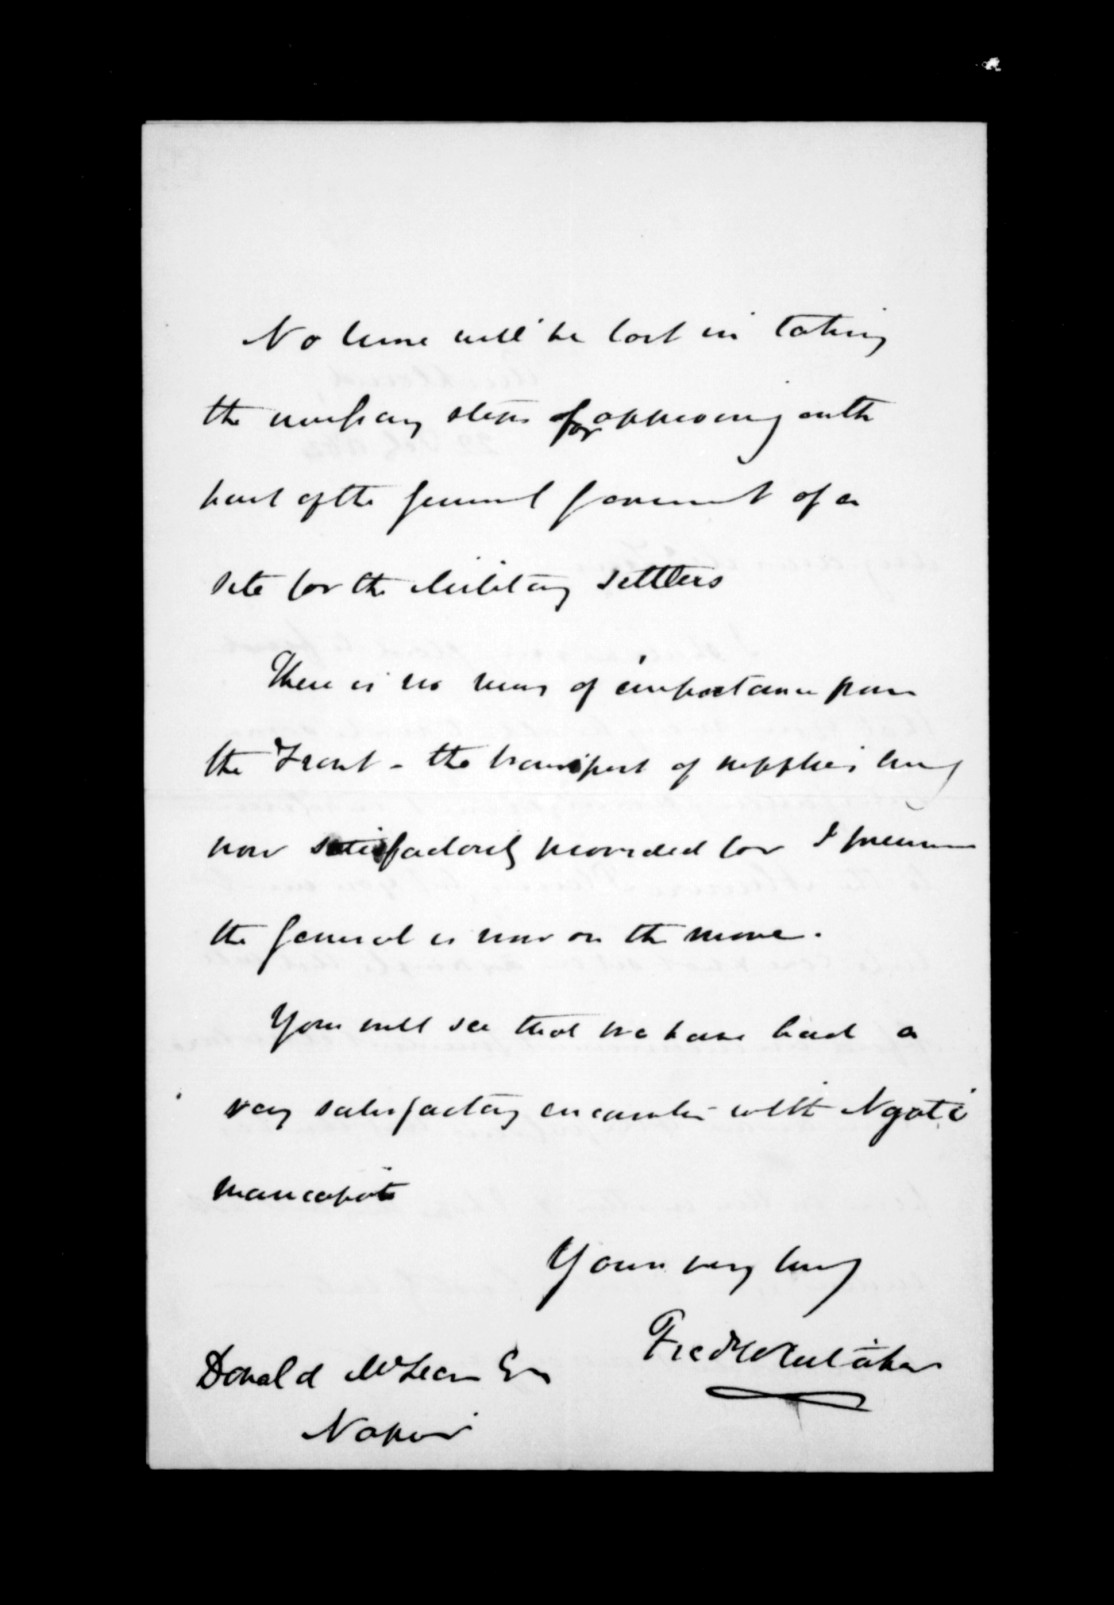 No time will be lost in taking
the necessary steps for approving on the
part of the General Government of a
site for the Military Settlers
There is no news of importance from
the Front - the transport of supplies being
now satisfactorily provided for I presume
the General is now on the move.
You will see that we have had a
very satisfactory encounter with Ngati
maneapoto
Yours very truly
Fred Whitaker
Donald McLean Esq
Napier